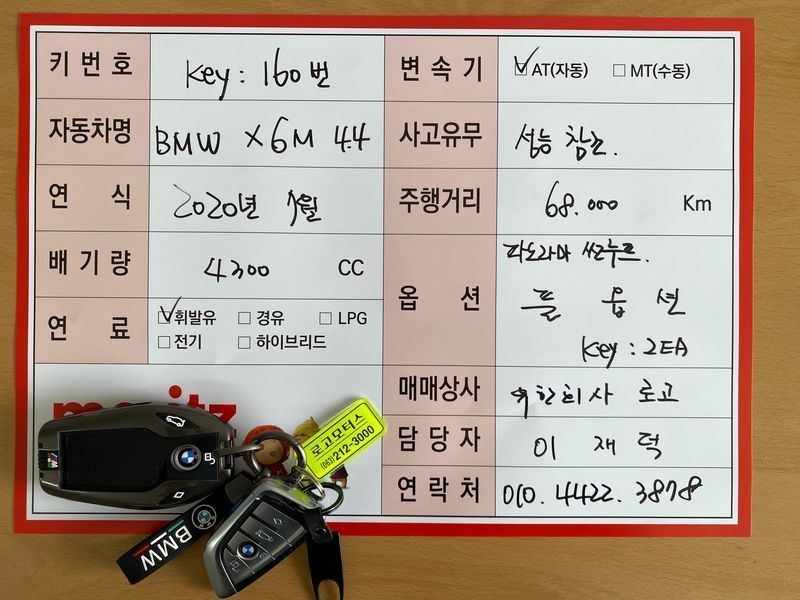 키 번 호
Key : 160번
변 속 기
☑ AT(자동) ☐ MT(수동)
자동차명
BMW X6M 4.4
사고유무
성능 참조.
연 식
2020년 1월
주행거리
68.000 Km
배 기 량
4300 CC
옵 션
파노라마 썬루프.
풀 옵 션
Key : 2EA
연 료
☑ 휘발유 ☐ 경유 ☐ LPG
☐ 전기 ☐ 하이브리드
매매상사
유한회사 로고
담 당 자
이 재 덕
연 락 처
010. 4422. 3878
로고모터스
(063)212-3000
BMW